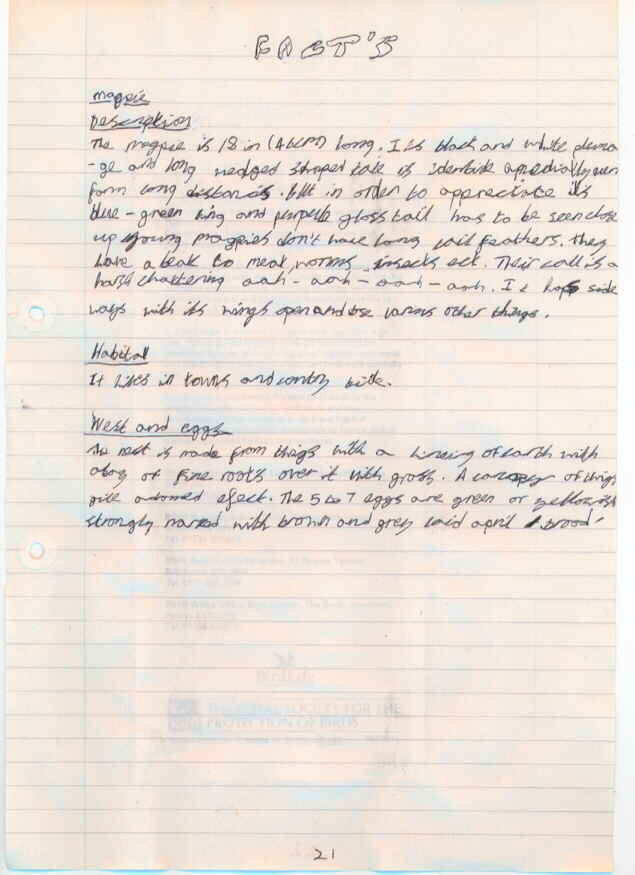 FACT'S
magpie
Description
The magpie is 18 in (46cm) long. Its black and white pluma
-ge and long wedged shaped tale is identible apecially wen
form long distances. But in order to appreciate its
blue-green wing and purpule gloss tail has to be seen close
up young magpies don't have long tail feathers. They
have a beak to meat, worms, insects ect. Their call is a
harsh chattering aah-aah-aah-aah. It hops side
ways with its wings open and various other things.
Habitat
It lives in towns and contry side.
Nest and eggs
The nest is made from twigs with a lineing of earth with
of fine roots over it with grass. A canopy of twigs
give a domed efect. The 5 to 7 eggs are green or yellowish
strongly marked with brown and grey laid april 1 brood
THE ROYAL SOCIETY FOR THE
PROTECTION OF BIRDS
21